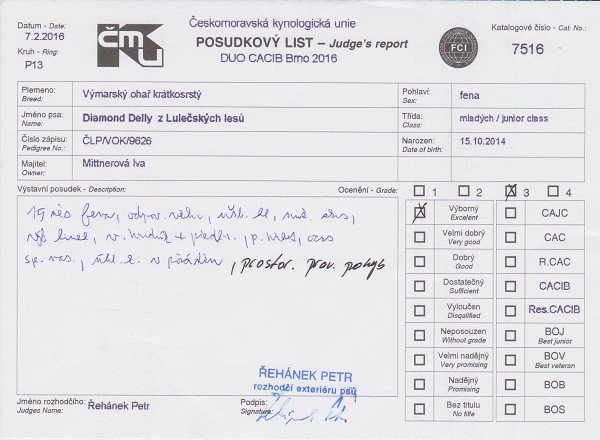 Datum - Date:
7.2.2016
Kruh - Ring:
P13
ČMKU
Českomoravská kynologická unie
POSUDKOVÝ LIST – Judge's report
DUO CACIB Brno 2016
FCI
Katalogové číslo - Cat. No.:
7516
Plemeno:
Breed:
Výmarský ohař krátkosrstý
Pohlaví:
Sex:
fena
Jméno psa:
Name:
Diamond Delly z Lulečských lesů
Třída:
Class:
mladých / junior class
Číslo zápisu:
Pedigree No.:
ČLP/VOK/9626
Narozen:
Date of birth:
15.10.2014
Majitel:
Owner:
Mittnerová Iva
Výstavní posudek - Description:
Ocenění - Grade:
1
2
3
4
fena, odpov.
, prostor. prav. pohyb
Výborný
Excelent
CAJC
Velmi dobrý
Very good
CAC
Dobrý
Good
R.CAC
Dostatečný
Sufficient
CACIB
Vyloučen
Disqalified
Res.CACIB
Neposouzen
Without grade
BOJ
Best junior
Velmi nadějný
Very promising
BOV
Best veteran
Nadějný
Promising
BOB
Bez titulu
No title
BOS
ŘEHÁNEK PETR
rozhodčí exteriéru psů
Jméno rozhodčího:
Judges Name:
Řehánek Petr
Podpis:
Signature: